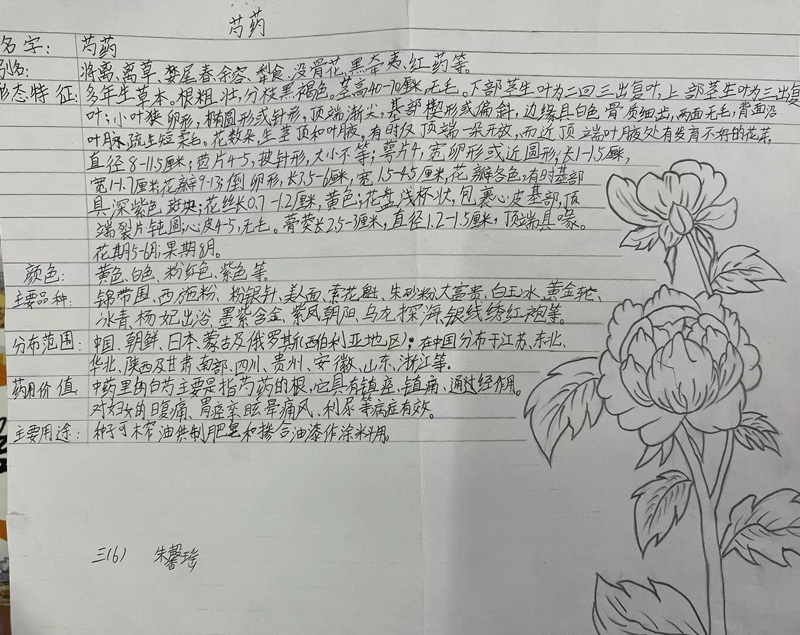 芍药
名字: 芍药
别名: 将离、离草、婪尾春、余容、犁食、没骨花、黑牵夷、红药等。
形态特征: 多年生草本。根粗壮,分枝黑褐色。茎高40-70厘米,无毛。下部茎生叶为二回三出复叶,上部茎生叶为三出复
叶;小叶狭卵形,椭圆形或针形,顶端渐尖,基部楔形或偏斜,边缘具白色骨质细齿,两面无毛,背面沿
叶脉疏生短柔毛。花数朵,生茎顶和叶腋,有时仅顶端一朵开放,而近顶端叶腋处有发育不好的花芽,
直径8-11.5厘米;苞片4-5,披针形,大小不等;萼片4,宽卵形或近圆形,长1-1.5厘米,
宽1-1.7厘米;花瓣9-13,倒卵形,长3.5-6厘米,宽1.5-4.5厘米,花瓣各色,有时基部
具深紫色斑块;花丝长0.7-1.2厘米,黄色;花盘浅杯状,包裹心皮基部,顶
端裂片钝圆心皮4-5,无毛。蓇葖长2.5-3厘米,直径1.2-1.5厘米,顶端具喙。
花期5-6月;果期8月。
颜色: 黄色、白色、粉红色、紫色等。
主要品种: 锦带围、西施粉、粉银针、美人面、索花魁、朱砂粉、大富贵、白玉冰、黄金轮、
冰青、杨妃出浴、墨紫含金、紫凤朝阳、乌龙探海、银线绣红袍等。
分布范围: 中国、朝鲜、日本、蒙古及俄罗斯(西伯利亚地区);在中国分布于江苏、东北、
华北、陕西及甘肃南部、四川、贵州、安徽、山东、浙江等。
药用价值: 中药里的白芍主要是指芍药的根,它具有镇痉、镇痛、通过经作用。
对妇女的腹痛、胃痉挛、眩晕、痛风、利尿等病症有效。
主要用途: 种子可榨油供制肥皂和掺合油漆作涂料用。
三(6) 朱馨瑶